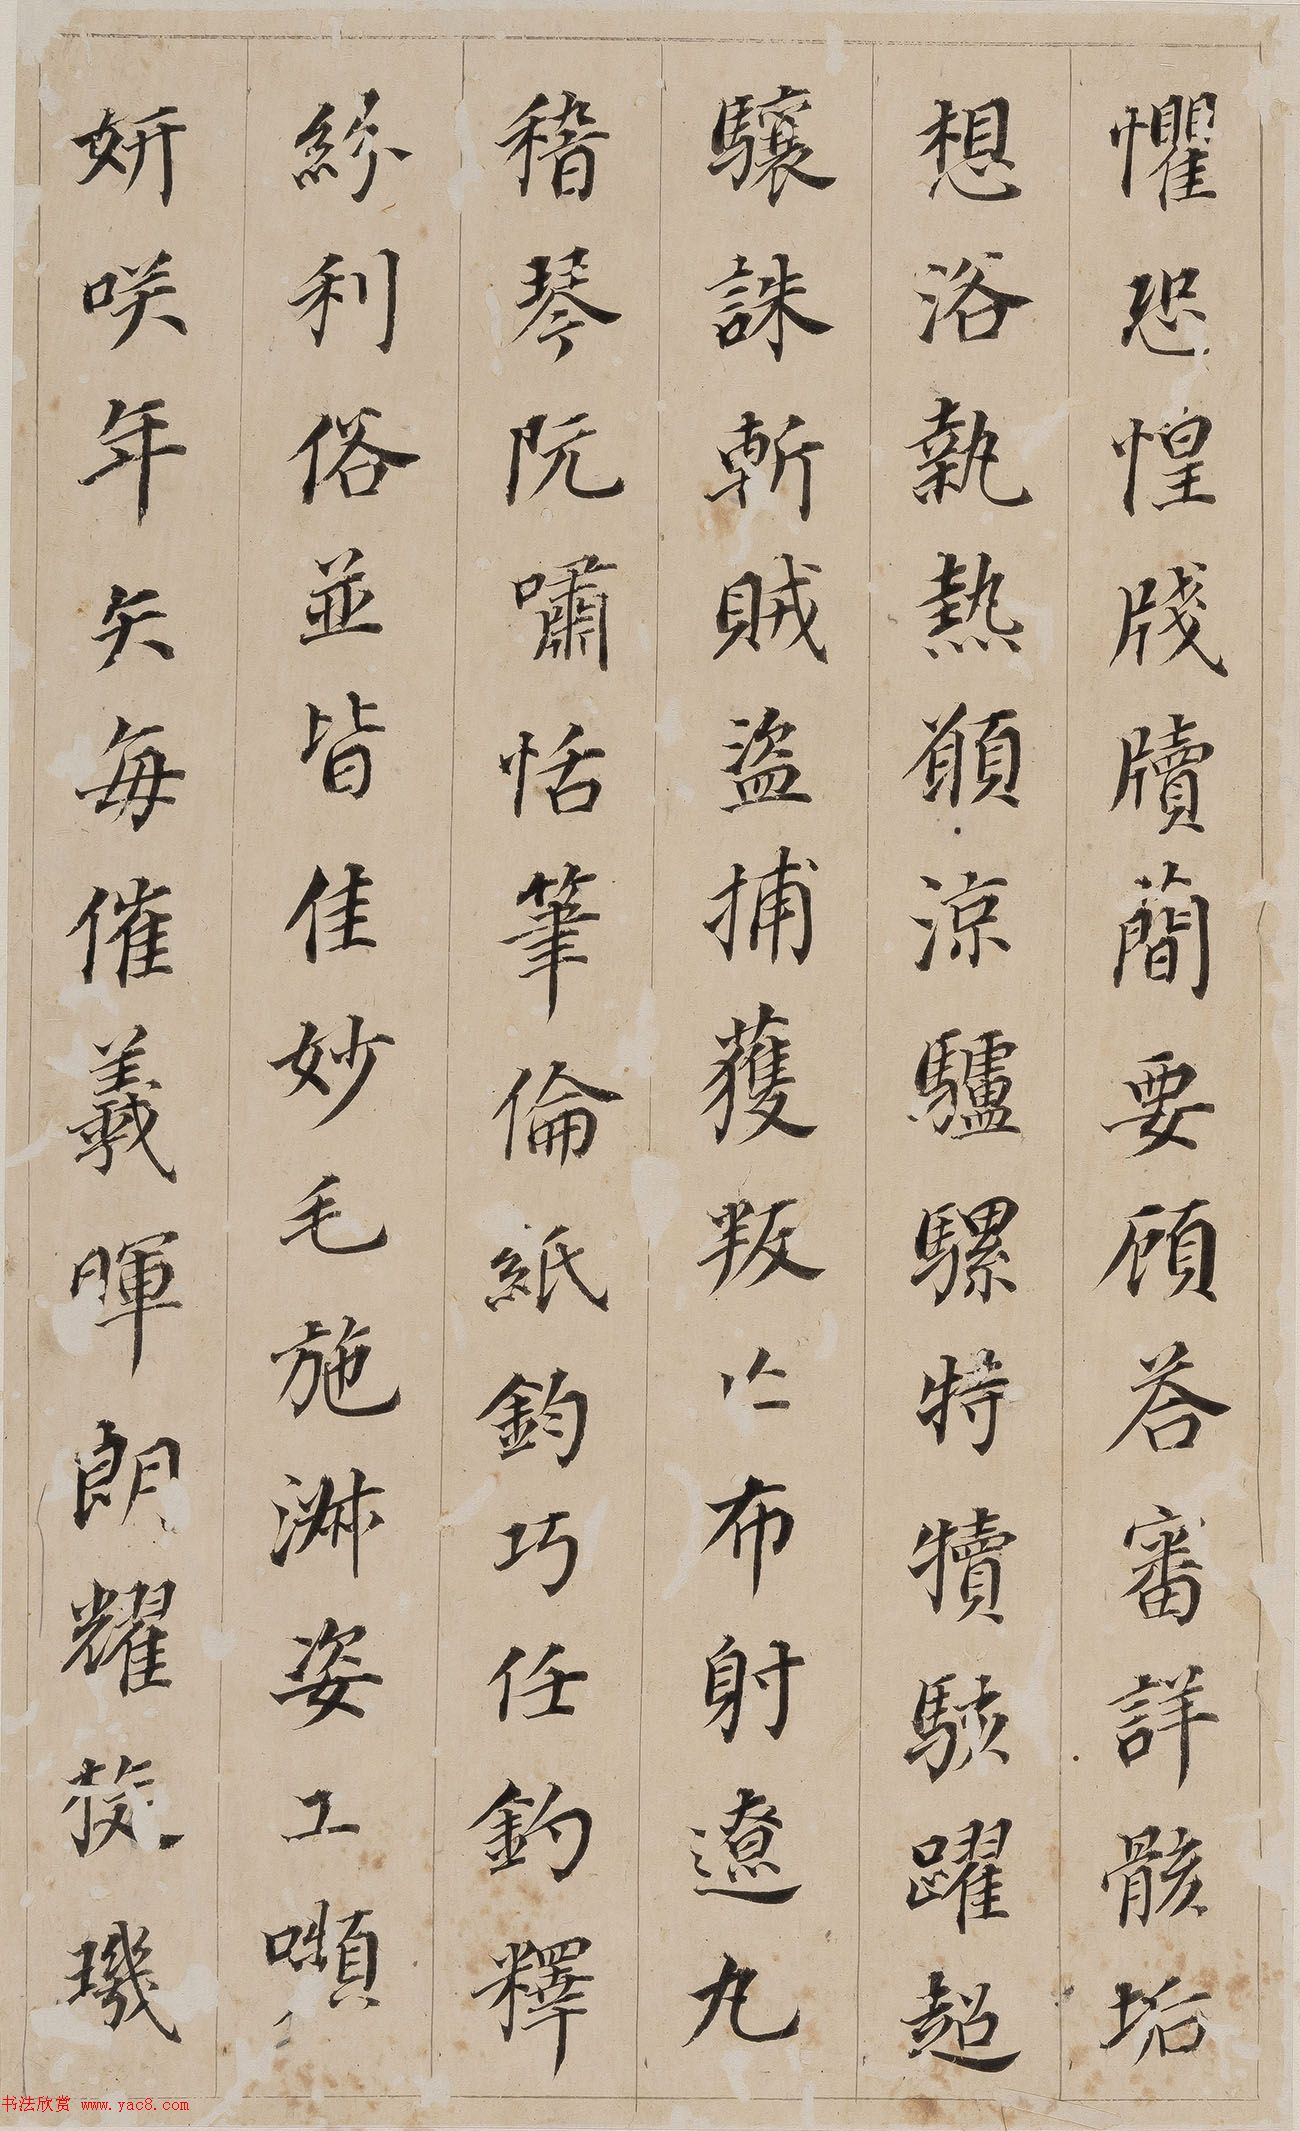 懼恐惶牋牘簡要顧荅審詳骸垢
想浴執熱願涼驢騾特犢駭躍超
驤誅斬賊盜捕獲叛亡布射遼九
嵇琴阮嘯恬筆倫紙鈞巧任釣釋
紛利俗並皆佳妙毛施淋姿工嚬
妍咲年矢每催羲暉朗耀旋璣
书法欣赏 www.yac8.com